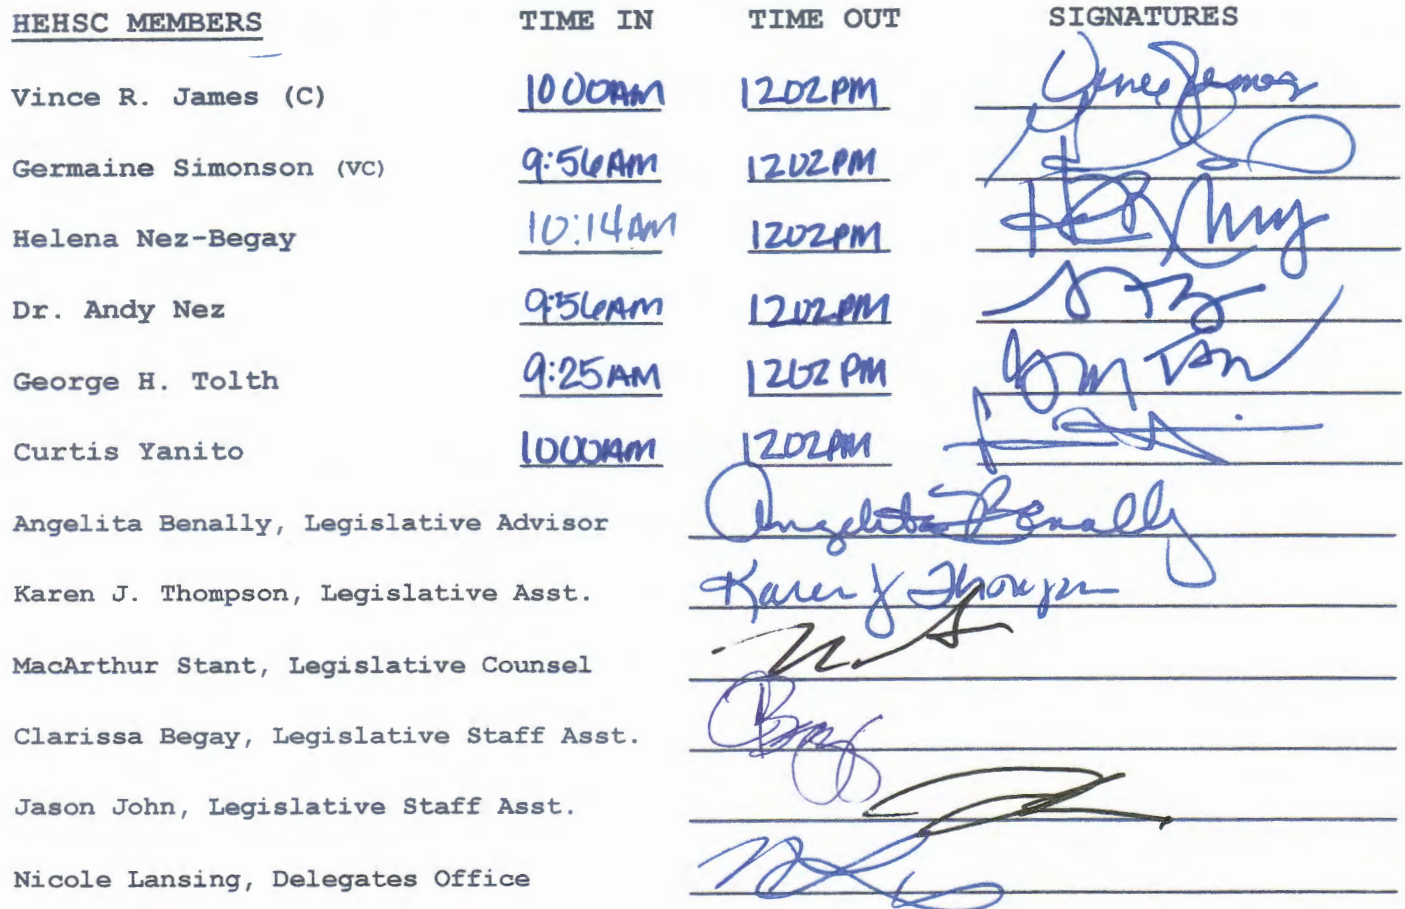 HEHSC MEMBERS TIME IN TIME OUT SIGNATURES
Vince R. James (C) 10 00AM 1202PM Vince James
Germaine Simonson (VC) 9:56AM 1202PM
Helena Nez-Begay 10:14AM 1202PM
Dr. Andy Nez 9:56AM 1202PM
George H. Tolth 9:25AM 1202 PM
Curtis Yanito 1000AM 1202PM
Angelita Benally, Legislative Advisor Angelita Benally
Karen J. Thompson, Legislative Asst. Karen J Thompson
MacArthur Stant, Legislative Counsel
Clarissa Begay, Legislative Staff Asst.
Jason John, Legislative Staff Asst.
Nicole Lansing, Delegates Office